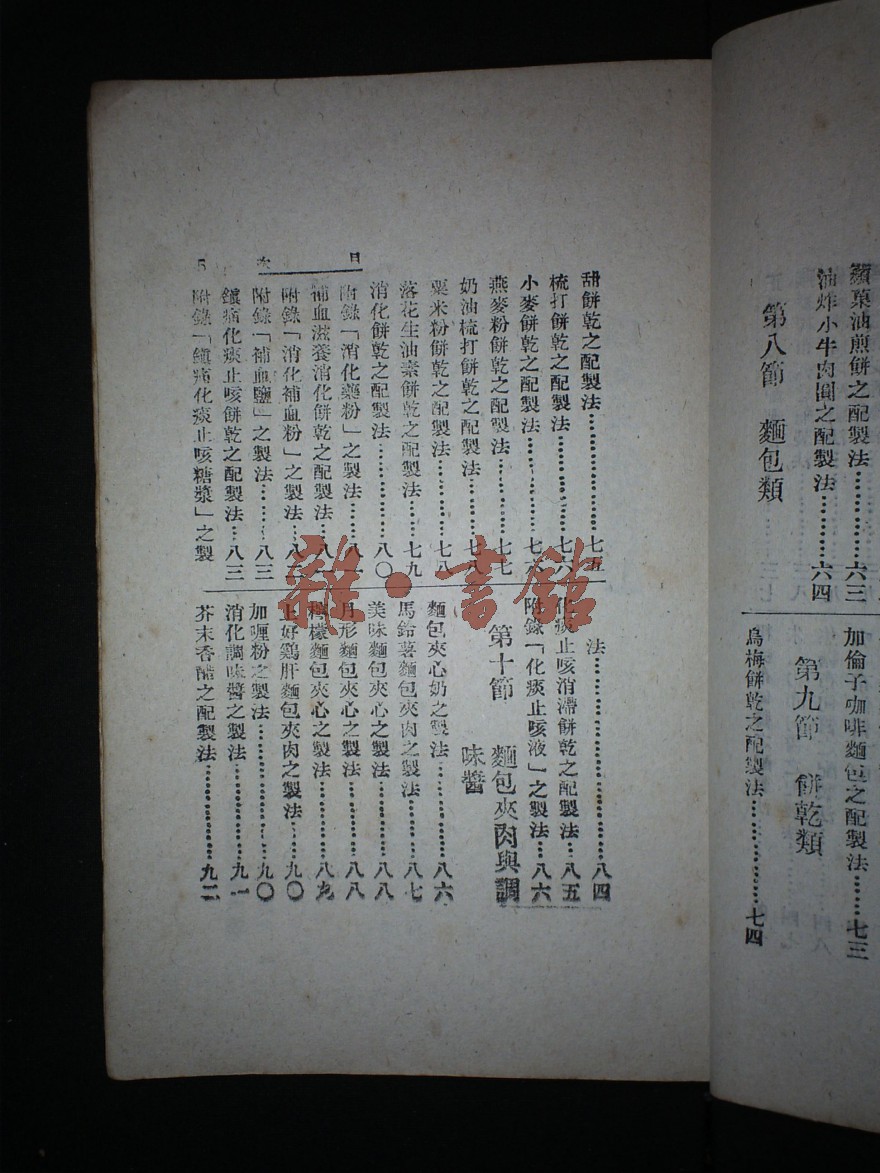 蘋菓油煎餅之配製法………六三
油炸小牛肉圓之配製法………六四
第八節 麵包類
加倫子咖啡麵包之配製法……七三
第九節 餅乾類
烏梅餅乾之配製法…………七四
目次 5
甜餅乾之配製法…………七五
梳打餅乾之配製法…………七六
小麥餅乾之配製法…………七六
燕麥粉餅乾之配製法………七七
奶油梳打餅乾之配製法……七八
粟米粉餅乾之配製法………七八
落花生油素餅乾之配製法……七九
消化餅乾之配製法…………八〇
附錄「消化藥粉」之製法……八一
補血滋養消化餅乾之配製法……八一
附錄「消化補血粉」之製法……八二
附錄「補血鹽」之製法………八三
鎮痛化痰止咳餅乾之配製法…八三
附錄「鎮痛化痰止咳糖漿」之製
法…………………八四
化痰止咳消滯餅乾之配製法…八五
附錄「化痰止咳液」之製法…八六
第十節 麵包夾肉與調
味醬
麵包夾心奶之製法…………八六
馬鈴薯麵包夾肉之製法………八七
美味麵包夾心之製法…………八八
月形麵包夾心之製法…………八八
檸檬麵包夾心之製法…………八九
上好鷄肝麵包夾肉之製法……九〇
加喱粉之製法………………九〇
消化調味醬之製法…………九一
芥末香醋之配製法…………九二
雜·書館